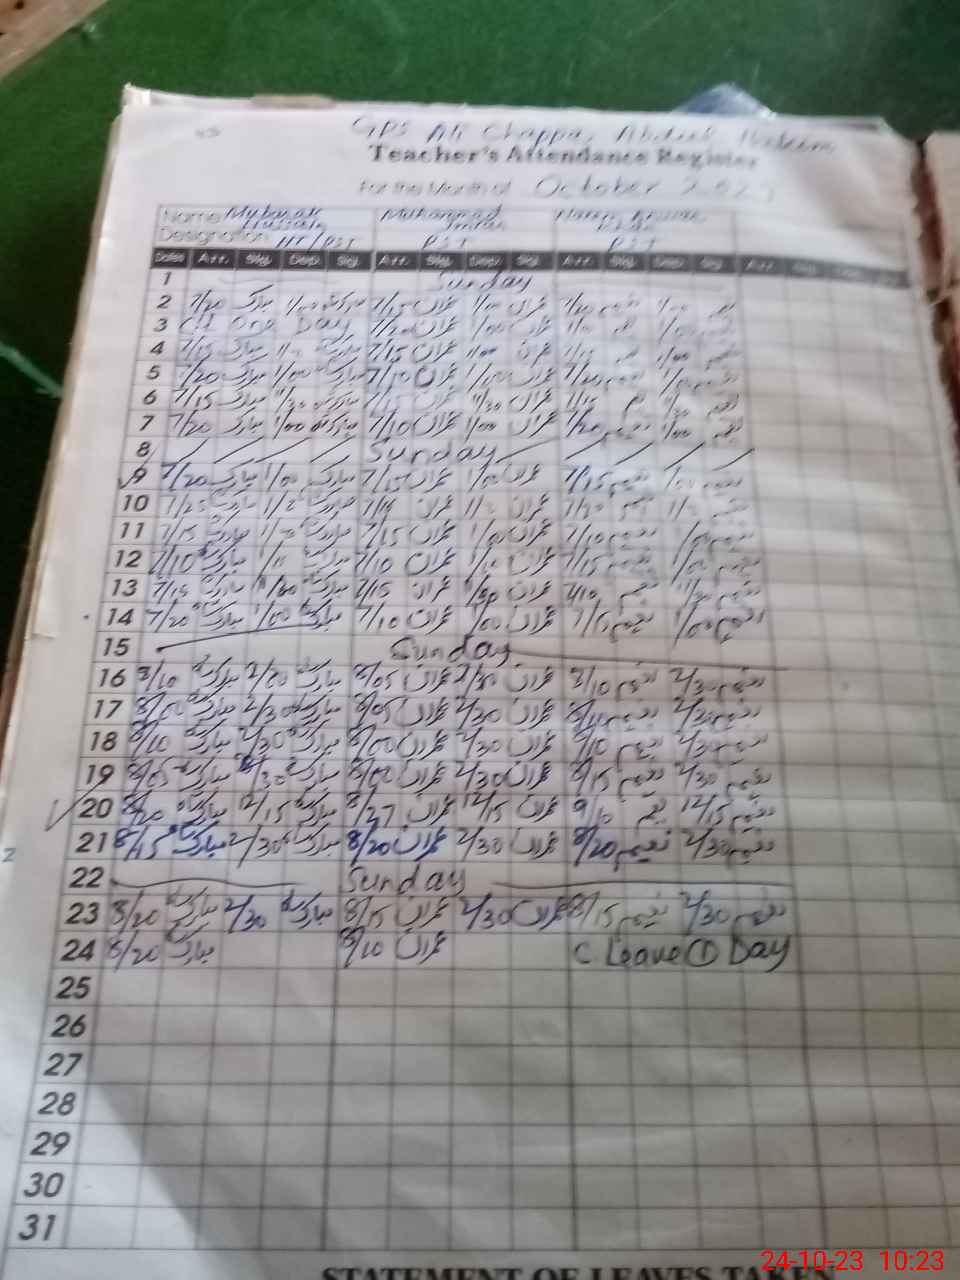 GPS Ali Chappa, Abdul Hakeem
Teacher's Attendance Register
For the Month of October 2023
Name Mubarak Hussain Muhammad Imran
Designation HT/PST PST PST
Dates Arr. Sig. Dep. Sig. Arr. Sig. Dep. Sig. Arr. Sig. Dep. Sig. Arr. Sig.
1 Sunday
2 7/20 مبارک 1/00 مبارک 7/15 عمران 1/00 عمران 7/20 نعیم 1/00 نعیم
3 One Day 7/20 عمران 1/00 عمران نعیم 1/00 نعیم
4 7/15 مبارک مبارک 7/15 عمران 1/00 عمران 7/15 نعیم 1/00 نعیم
5 7/20 مبارک 1/00 مبارک 7/10 عمران 1/00 عمران 7/20 نعیم 1/00 نعیم
6 7/15 مبارک 11/30 مبارک 7/15 عمران 11/30 عمران نعیم 11/30 نعیم
7 7/20 مبارک 1/00 مبارک 7/10 عمران 1/00 عمران 7/20 نعیم 1/00 نعیم
8 Sunday
9 7/20 مبارک 1/00 مبارک 7/15 عمران 1/00 عمران 7/15 نعیم 1/00 نعیم
10 7/25 مبارک مبارک 7/15 عمران عمران نعیم نعیم
11 7/15 مبارک مبارک 7/15 عمران 1/00 عمران 7/10 نعیم 1/00 نعیم
12 7/10 مبارک مبارک 7/10 عمران عمران 7/15 نعیم 1/00 نعیم
13 7/15 مبارک مبارک 7/15 عمران عمران 7/10 نعیم 11/30 نعیم
14 7/20 مبارک 1/00 مبارک 7/10 عمران 1/00 عمران 7/15 نعیم 1/00 نعیم
15 Sunday
16 8/10 مبارک مبارک 8/05 عمران 2/30 عمران 8/10 نعیم 2/30 نعیم
17 8/00 مبارک 2/30 مبارک 8/05 عمران 2/30 عمران نعیم 2/30 نعیم
18 8/10 مبارک 2/30 مبارک 8/00 عمران 2/30 عمران 8/10 نعیم 2/30 نعیم
19 8/05 مبارک 2/30 مبارک 8/00 عمران 2/30 عمران 8/15 نعیم 2/30 نعیم
20 8/20 مبارک 12/15 مبارک 8/27 عمران 12/15 عمران 9/10 نعیم 12/15 نعیم
21 8/15 مبارک 2/30 مبارک 8/20 عمران 2/30 عمران 8/20 نعیم 2/30 نعیم
22 Sunday
23 8/20 مبارک 2/30 مبارک 8/15 عمران 2/30 عمران 8/15 نعیم 2/30 نعیم
24 8/20 مبارک 8/10 عمران C. Leave ① Day
25
26
27
28
29
30
31
STATEMENT OF LEAVES TAKEN
24-10-23 10:23